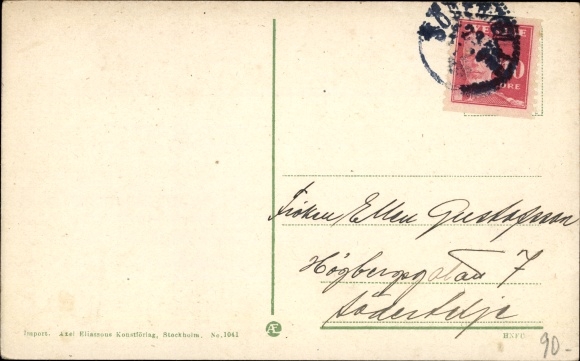 SVERIGE
ÖRE
Fröken Ellen Gustafsson
Högbergsgatan 7
Södertelje
Import. Axel Eliassons Konstförlag, Stockholm. No. 1041
90-